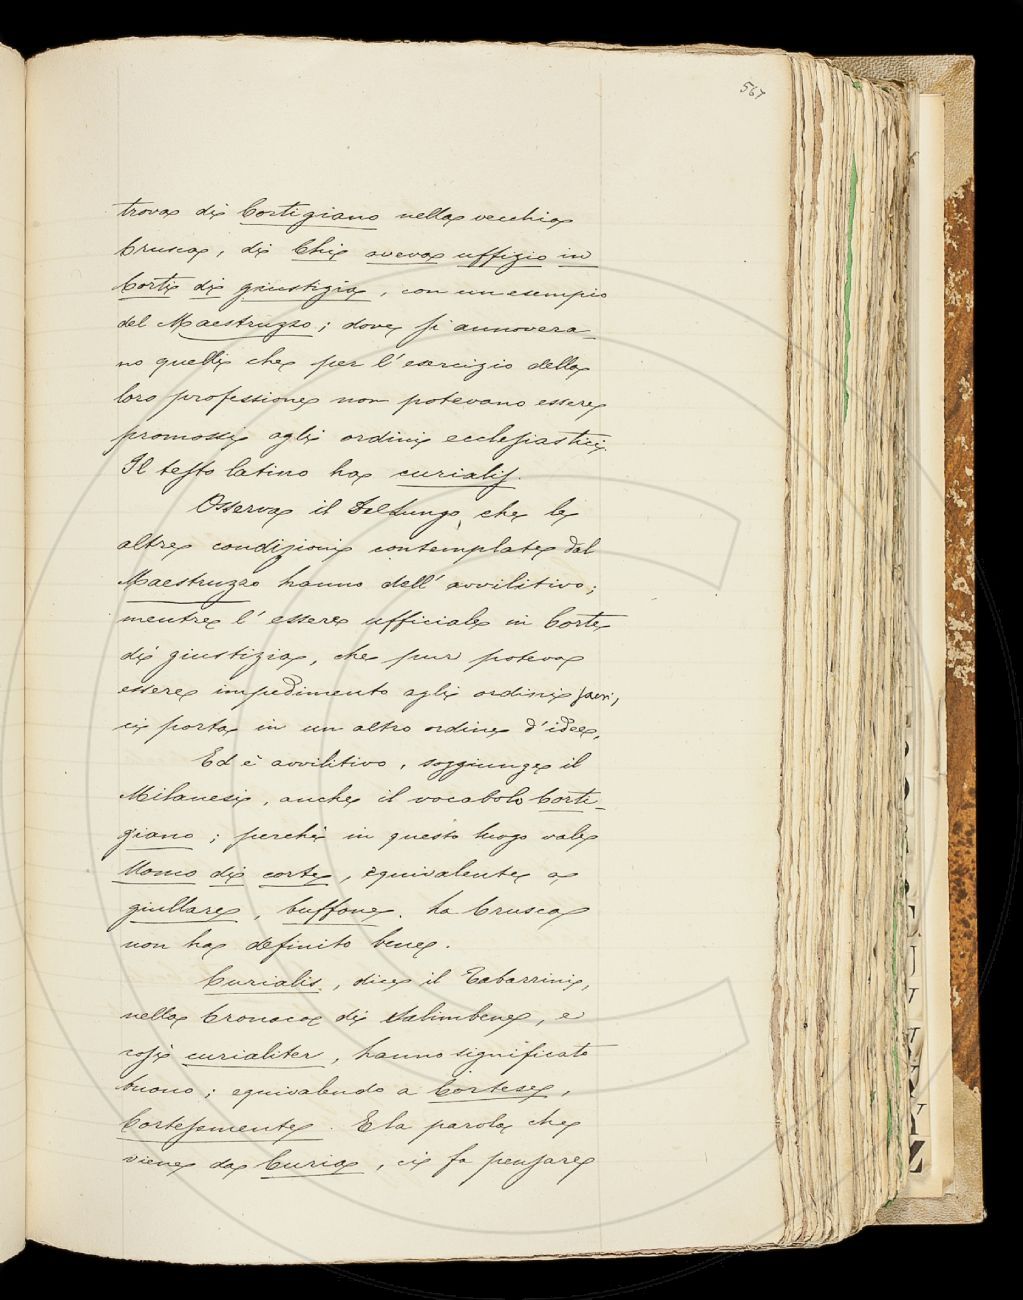 567
trova di Cortigiano nella vecchia
Crusca, di Chi aveva uffizio in
Corti di giustizia, con un esempio
del Maestruzzo; dove si annovera-
no quelli che per l'esercizio della
loro professione non potevano essere
promossi agli ordini ecclesiastici.
Il testo latino ha curialis.
Osserva il Del Lungo, che le
altre condizioni contemplate dal
Maestruzzo hanno dell'avvilitivo;
mentre l'essere ufficiale in Corte
di giustizia, che pur poteva
essere impedimento agli ordini sacri,
ci porta in un altro ordine d'idee.
Ed è avvilitivo, soggiunge il
Milanesi, anche il vocabolo Corti-
giano; perchè in questo luogo vale
Uomo di corte, equivalente a
giullare, buffone. La Crusca
non ha definito bene.
Curialis, dice il Tabarrini,
nella Cronaca di Salimbene, e
così curialiter, hanno significato
buono; equivalendo a Cortese,
Cortesemente. E la parola che
viene da Curia, ci fa pensare